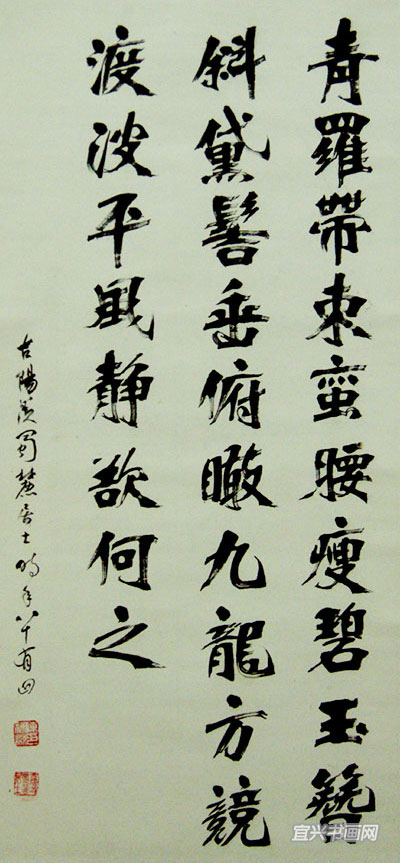 青羅帶束蠻腰瘦碧玉簪
斜黛髻垂俯瞰九龍方競
渡波平風靜欲何之
古陽羨蜀麓居士時年八十有四
宜兴书画网